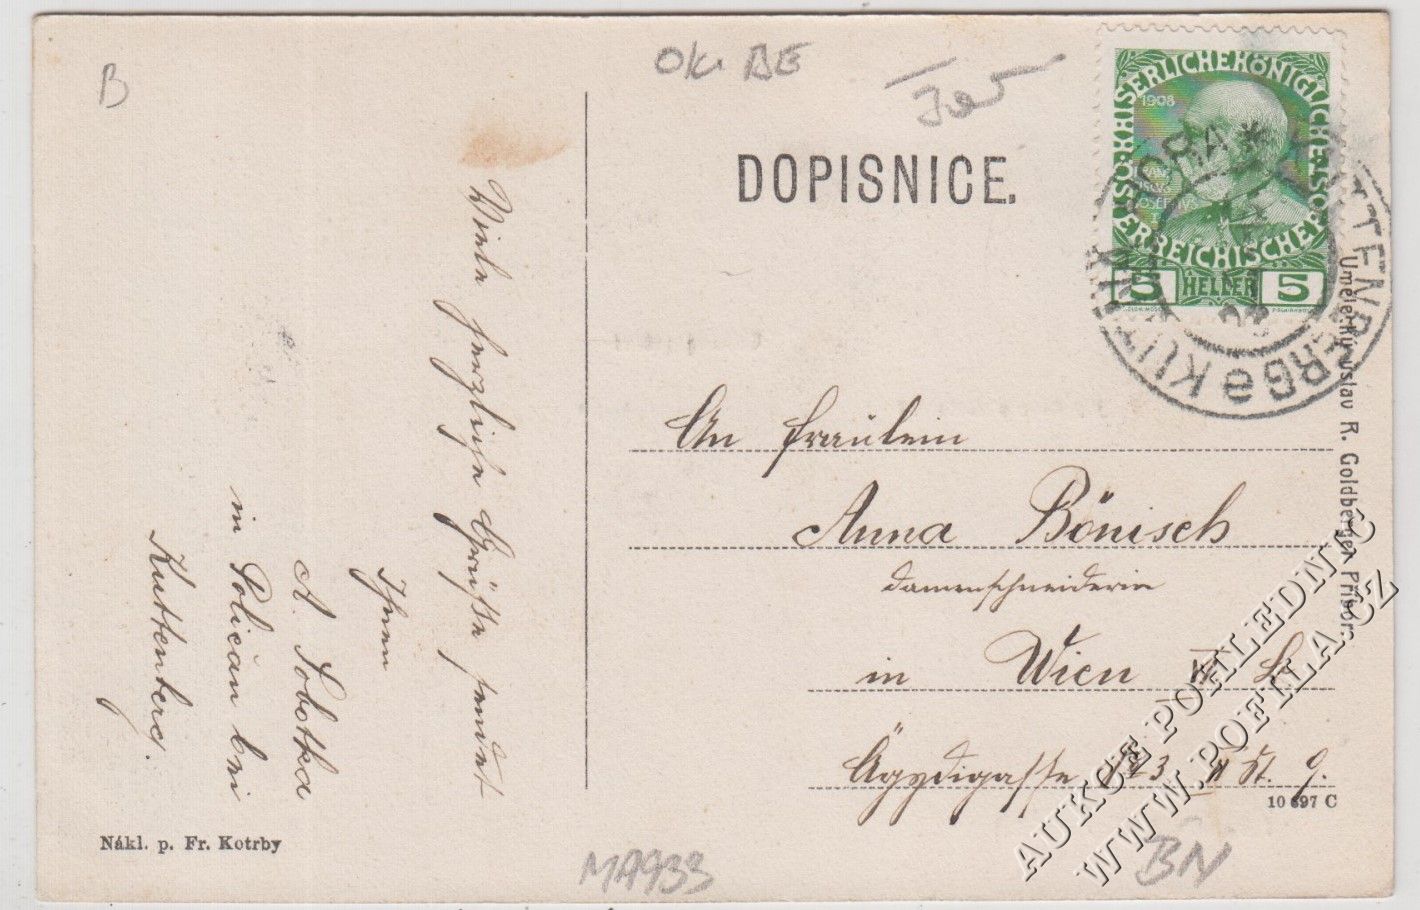 B
DOPISNICE.
1908
KAISERLICHE KÖNIGLICHE ÖSTERREICHISCHE
5 HELLER 5
KUTTENBERG
KUTNÁ HORA
Viele herzliche Grüße sendet
Ihnen
A. Sobotka
in Poličan bei
Kuttenberg.
An Fräulein
Anna Bönisch
Damenschneiderin
in Wien
Ägydigasse
9.
Umělecký ústav R. Goldberger, Příbor.
10 697 C
Nákl. p. Fr. Kotrby
MA933
BN
AUKCE POHLEDNIC
WWW.POFILA.CZ